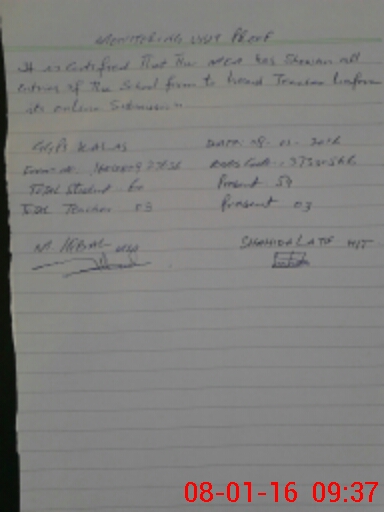 MONITERING VISIT PROOF
It is Certified That The MEA has Shown all
entries of The School form to head Teacher before
its online Submission
GGPS KALAS DATE: 08-01-2016
EMIS Code: 37330566
Total Student 60 Present 59
Total Teacher 03 Present 03
M. IQBAL MEA SHAHIDA LATIF HT
08-01-16 09:37